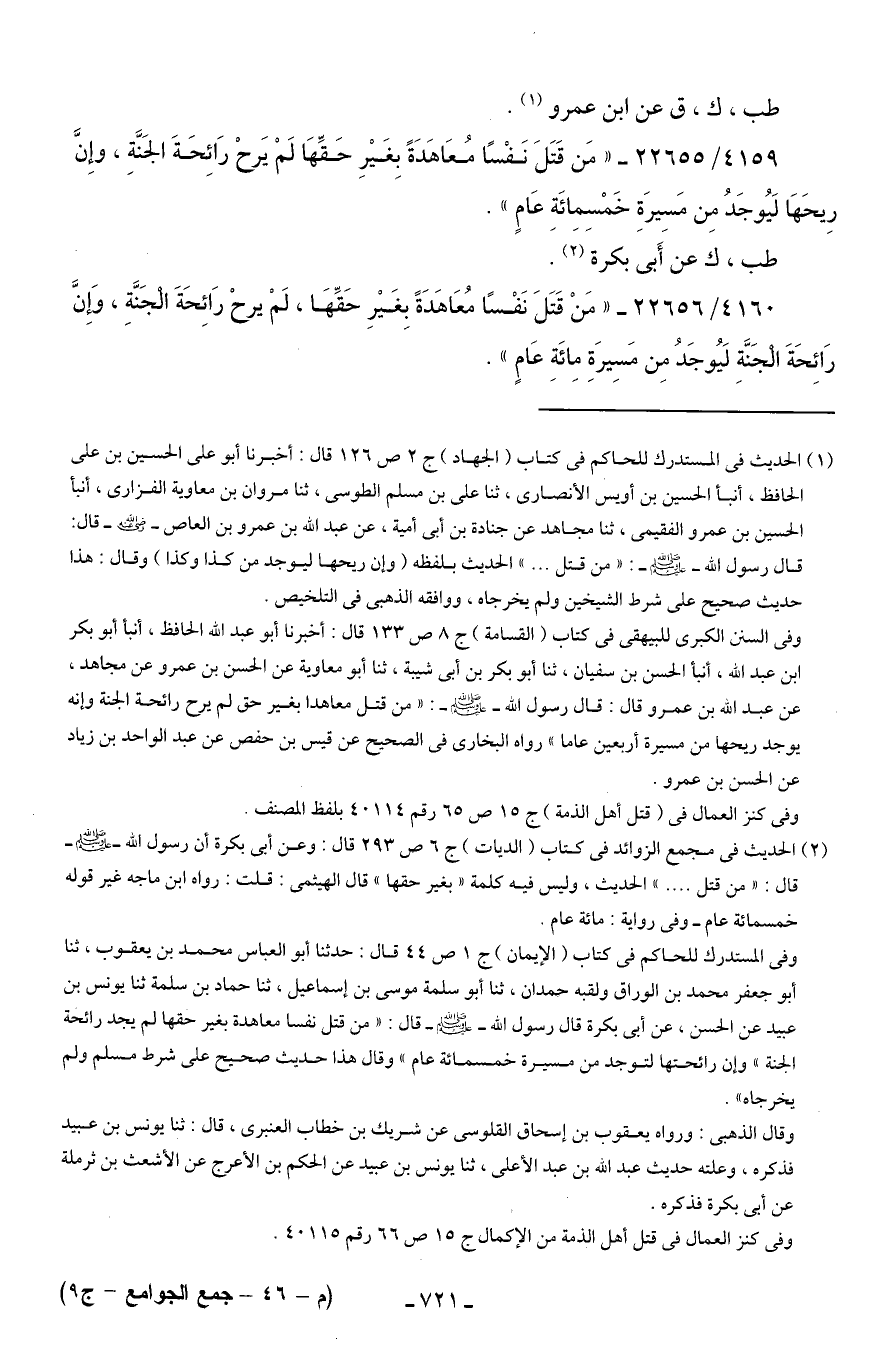 طب ، ك ، ق عن ابن عمرو (١) .
٤١٥٩/ ٢٢٦٥٥ ـ « مَن قَتَلَ نَفْسًا مُعَاهَدَةً بِغَيْرِ حَقِّهَا لَمْ يَرحْ رَائِحَةَ الجَنَّةِ ، وإِنَّ
رِيحَهَا لَيُوجَدُ مِن مَسِيرَةِ خَمْسِمِائَةِ عَامٍ » .
طب ، ك عن أَبى بكرة (٢) .
٤١٦٠/ ٢٢٦٥٦ ـ « مَنْ قَتَلَ نَفْسًا مُعَاهَدَةً بِغَيْرِ حَقِّهَا ، لَمْ يرحْ رَائِحَةَ الْجَنَّةِ ، وَإِنَّ
رَائِحَةَ الْجَنَّةِ لَيُوجَدُ مِن مَسِيرَةِ مِائَةِ عَامٍ » .
(١) الحديث فى المستدرك للحاكم فى كتاب ( الجهاد ) ج ٢ ص ١٢٦ قال : أخبرنا أبو على الحسين بن على
الحافظ ، أنبأ الحسين بن أويس الأنصارى ، ثنا على بن مسلم الطوسى ، ثنا مروان بن معاوية الفزارى ، أنبأ
الحسين بن عمرو الفقيمى ، ثنا مجاهد عن جنادة بن أبى أمية ، عن عبد الله بن عمرو بن العاص ـ رضي الله عنه ـ قال:
قال رسول الله ـ ﷺ ـ : « من قتل ... » الحديث بلفظه ( وإن ريحها ليوجد من كذا وكذا ) وقال : هذا
حديث صحيح على شرط الشيخين ولم يخرجاه ، ووافقه الذهبى فى التلخيص .
وفى السنن الكبرى للبيهقى فى كتاب ( القسامة ) ج ٨ ص ١٣٣ قال : أخبرنا أبو عبد الله الحافظ ، أنبأ أبو بكر
ابن عبد الله ، أنبأ الحسن بن سفيان ، ثنا أبو بكر بن أبى شيبة ، ثنا أبو معاوية عن الحسن بن عمرو عن مجاهد ،
عن عبد الله بن عمرو قال : قال رسول الله ـ ﷺ ـ : « من قتل معاهدا بغير حق لم يرح رائحة الجنة وإنه
يوجد ريحها من مسيرة أربعين عاما » رواه البخارى فى الصحيح عن قيس بن حفص عن عبد الواحد بن زياد
عن الحسن بن عمرو .
وفى كنز العمال فى ( قتل أهل الذمة ) ج ١٥ ص ٦٥ رقم ٤٠١١٤ بلفظ المصنف .
(٢) الحديث فى مجمع الزوائد فى كتاب ( الديات ) ج ٦ ص ٢٩٣ قال : وعن أبى بكرة أن رسول الله ـ ﷺ ـ
قال : « من قتل .... » الحديث ، وليس فيه كلمة « بغير حقها » قال الهيثمى : قلت : رواه ابن ماجه غير قوله
خمسمائة عام ـ وفى رواية : مائة عام .
وفى المستدرك للحاكم فى كتاب ( الإيمان ) ج ١ ص ٤٤ قال : حدثنا أبو العباس محمد بن يعقوب ، ثنا
أبو جعفر محمد بن الوراق ولقبه حمدان ، ثنا أبو سلمة موسى بن إسماعيل ، ثنا حماد بن سلمة ثنا يونس بن
عبيد عن الحسن ، عن أبى بكرة قال رسول الله ـ ﷺ ـ قال : « من قتل نفسا معاهدة بغير حقها لم يجد رائحة
الجنة » وإن رائحتها لتوجد من مسيرة خمسمائة عام » وقال هذا حديث صحيح على شرط مسلم ولم
يخرجاه» .
وقال الذهبى : ورواه يعقوب بن إسحاق القلوسى عن شريك بن خطاب العنبرى ، قال : ثنا يونس بن عبيد
فذكره ، وعلته حديث عبد الله بن عبد الأعلى ، ثنا يونس بن عبيد عن الحكم بن الأعرج عن الأشعث بن ثرملة
عن أبى بكرة فذكره .
وفى كنز العمال فى قتل أهل الذمة من الإكمال ج ١٥ ص ٦٦ رقم ٤٠١١٥ .
ـ ٧٢١ ـ (م – ٤٦ – جمع الجوامع – ج٩)